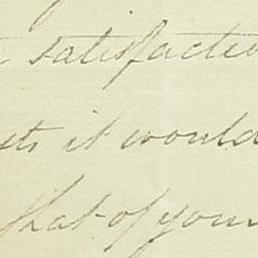 satisfactio
ts it would
that of your